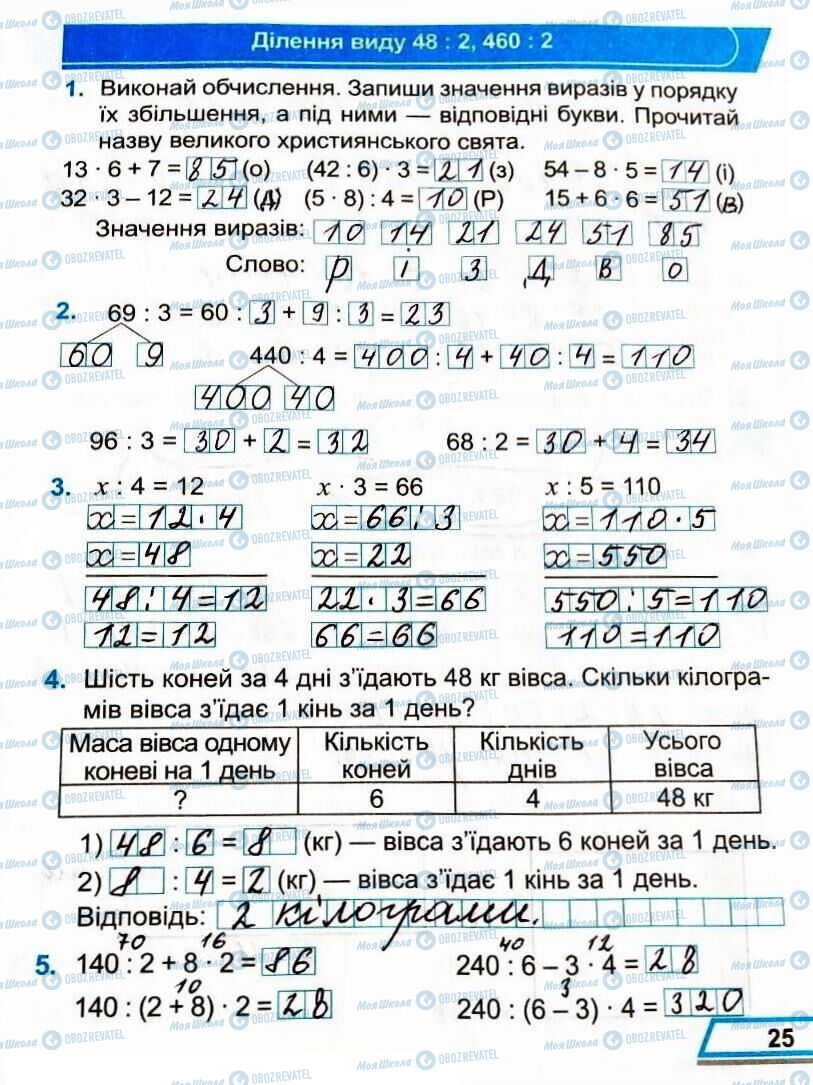 Ділення виду 48 : 2, 460 : 2
1. Виконай обчислення. Запиши значення виразів у порядку
їх збільшення, а під ними — відповідні букви. Прочитай
назву великого християнського свята.
13 · 6 + 7 = 85 (о) (42 : 6) · 3 = 21 (з) 54 – 8 · 5 = 14 (і)
32 · 3 – 12 = 24 (Д) (5 · 8) : 4 = 10 (Р) 15 + 6 · 6 = 51 (в)
Значення виразів: 10 14 21 24 51 85
Слово: р і з д в о
2. 69 : 3 = 60 : 3 + 9 : 3 = 23
60 9 440 : 4 = 400 : 4 + 40 : 4 = 110
400 40
96 : 3 = 30 + 2 = 32 68 : 2 = 30 + 4 = 34
3. x : 4 = 12 x · 3 = 66 x : 5 = 110
x = 12 · 4 x = 66 : 3 x = 110 · 5
x = 48 x = 22 x = 550
48 : 4 = 12 22 · 3 = 66 550 : 5 = 110
12 = 12 66 = 66 110 = 110
4. Шість коней за 4 дні з'їдають 48 кг вівса. Скільки кілогра-
мів вівса з'їдає 1 кінь за 1 день?
Маса вівса одному Кількість Кількість Усього
коневі на 1 день коней днів вівса
? 6 4 48 кг
1) 48 : 6 = 8 (кг) — вівса з'їдають 6 коней за 1 день.
2) 8 : 4 = 2 (кг) — вівса з'їдає 1 кінь за 1 день.
Відповідь: 2 кілограми.
70 16 40 12
5. 140 : 2 + 8 · 2 = 86 240 : 6 – 3 · 4 = 28
10 3
140 : (2 + 8) · 2 = 28 240 : (6 – 3) · 4 = 320
25